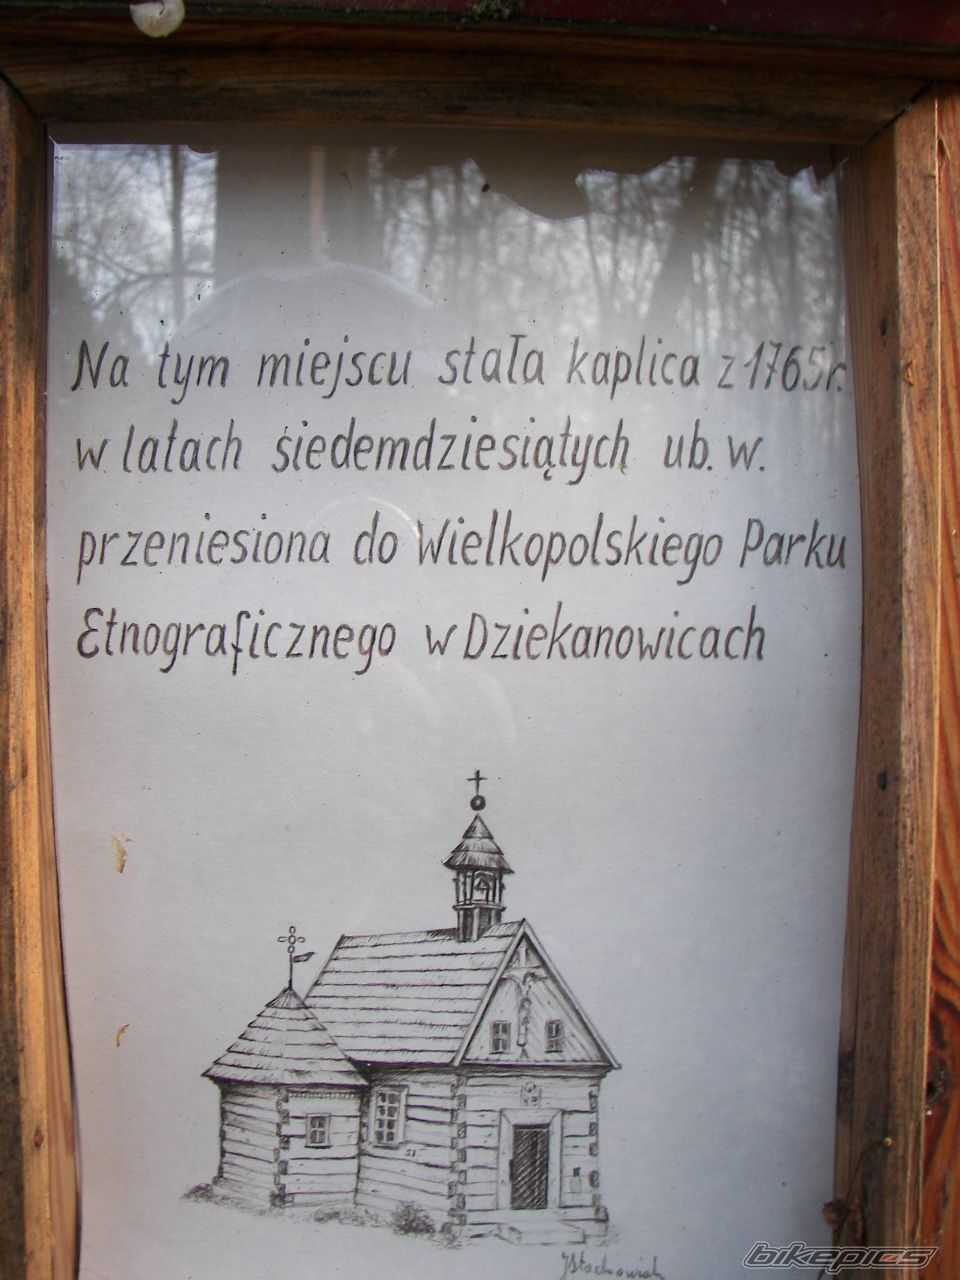 Na tym miejscu stała kaplica z 1765r.
w latach siedemdziesiątych ub. w.
przeniesiona do Wielkopolskiego Parku
Etnograficznego w Dziekanowicach
bikepics